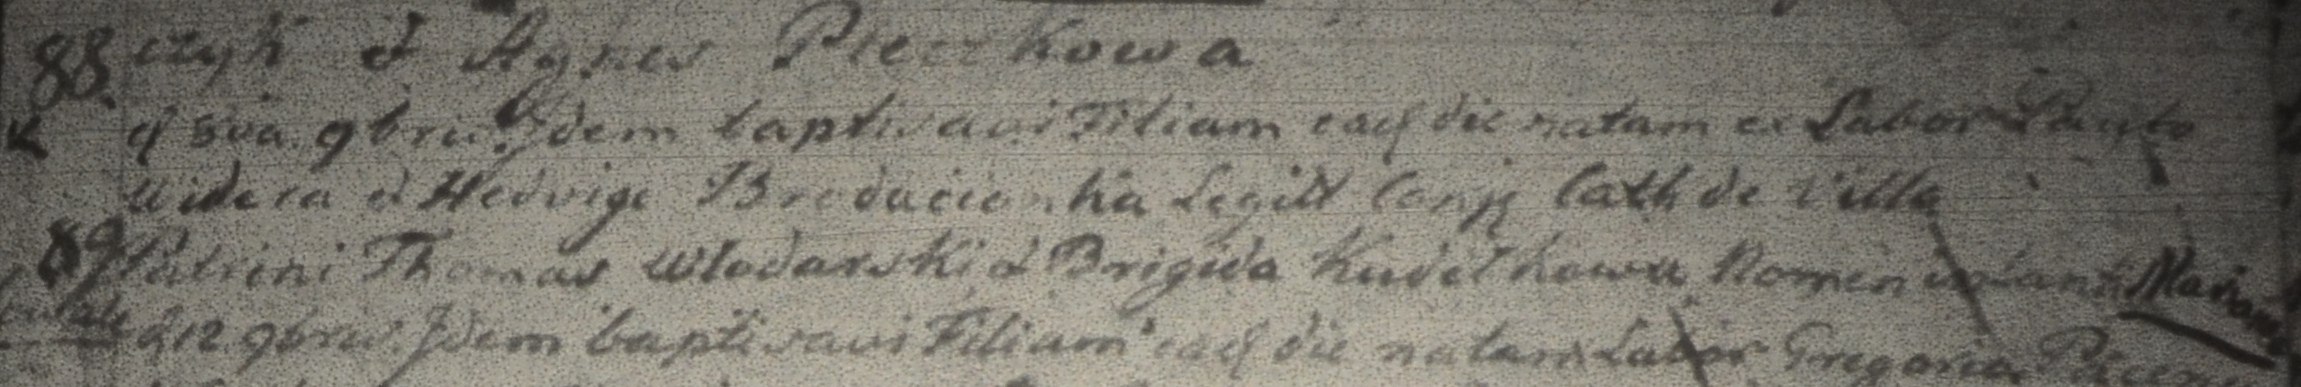 88 czyk et Agnes Pieczkowa
d 5va 9bris Idem baptisavi Filiam ead die natam ex Labor
Widera et Hedvige Legitt Conj Cath de Villa
89 Patrini Thomas Wlodarski et Brigida Kudelkowa Nomen infant
d 12 9bris Idem baptisavi Filiam ead die natam Labor Gregorio